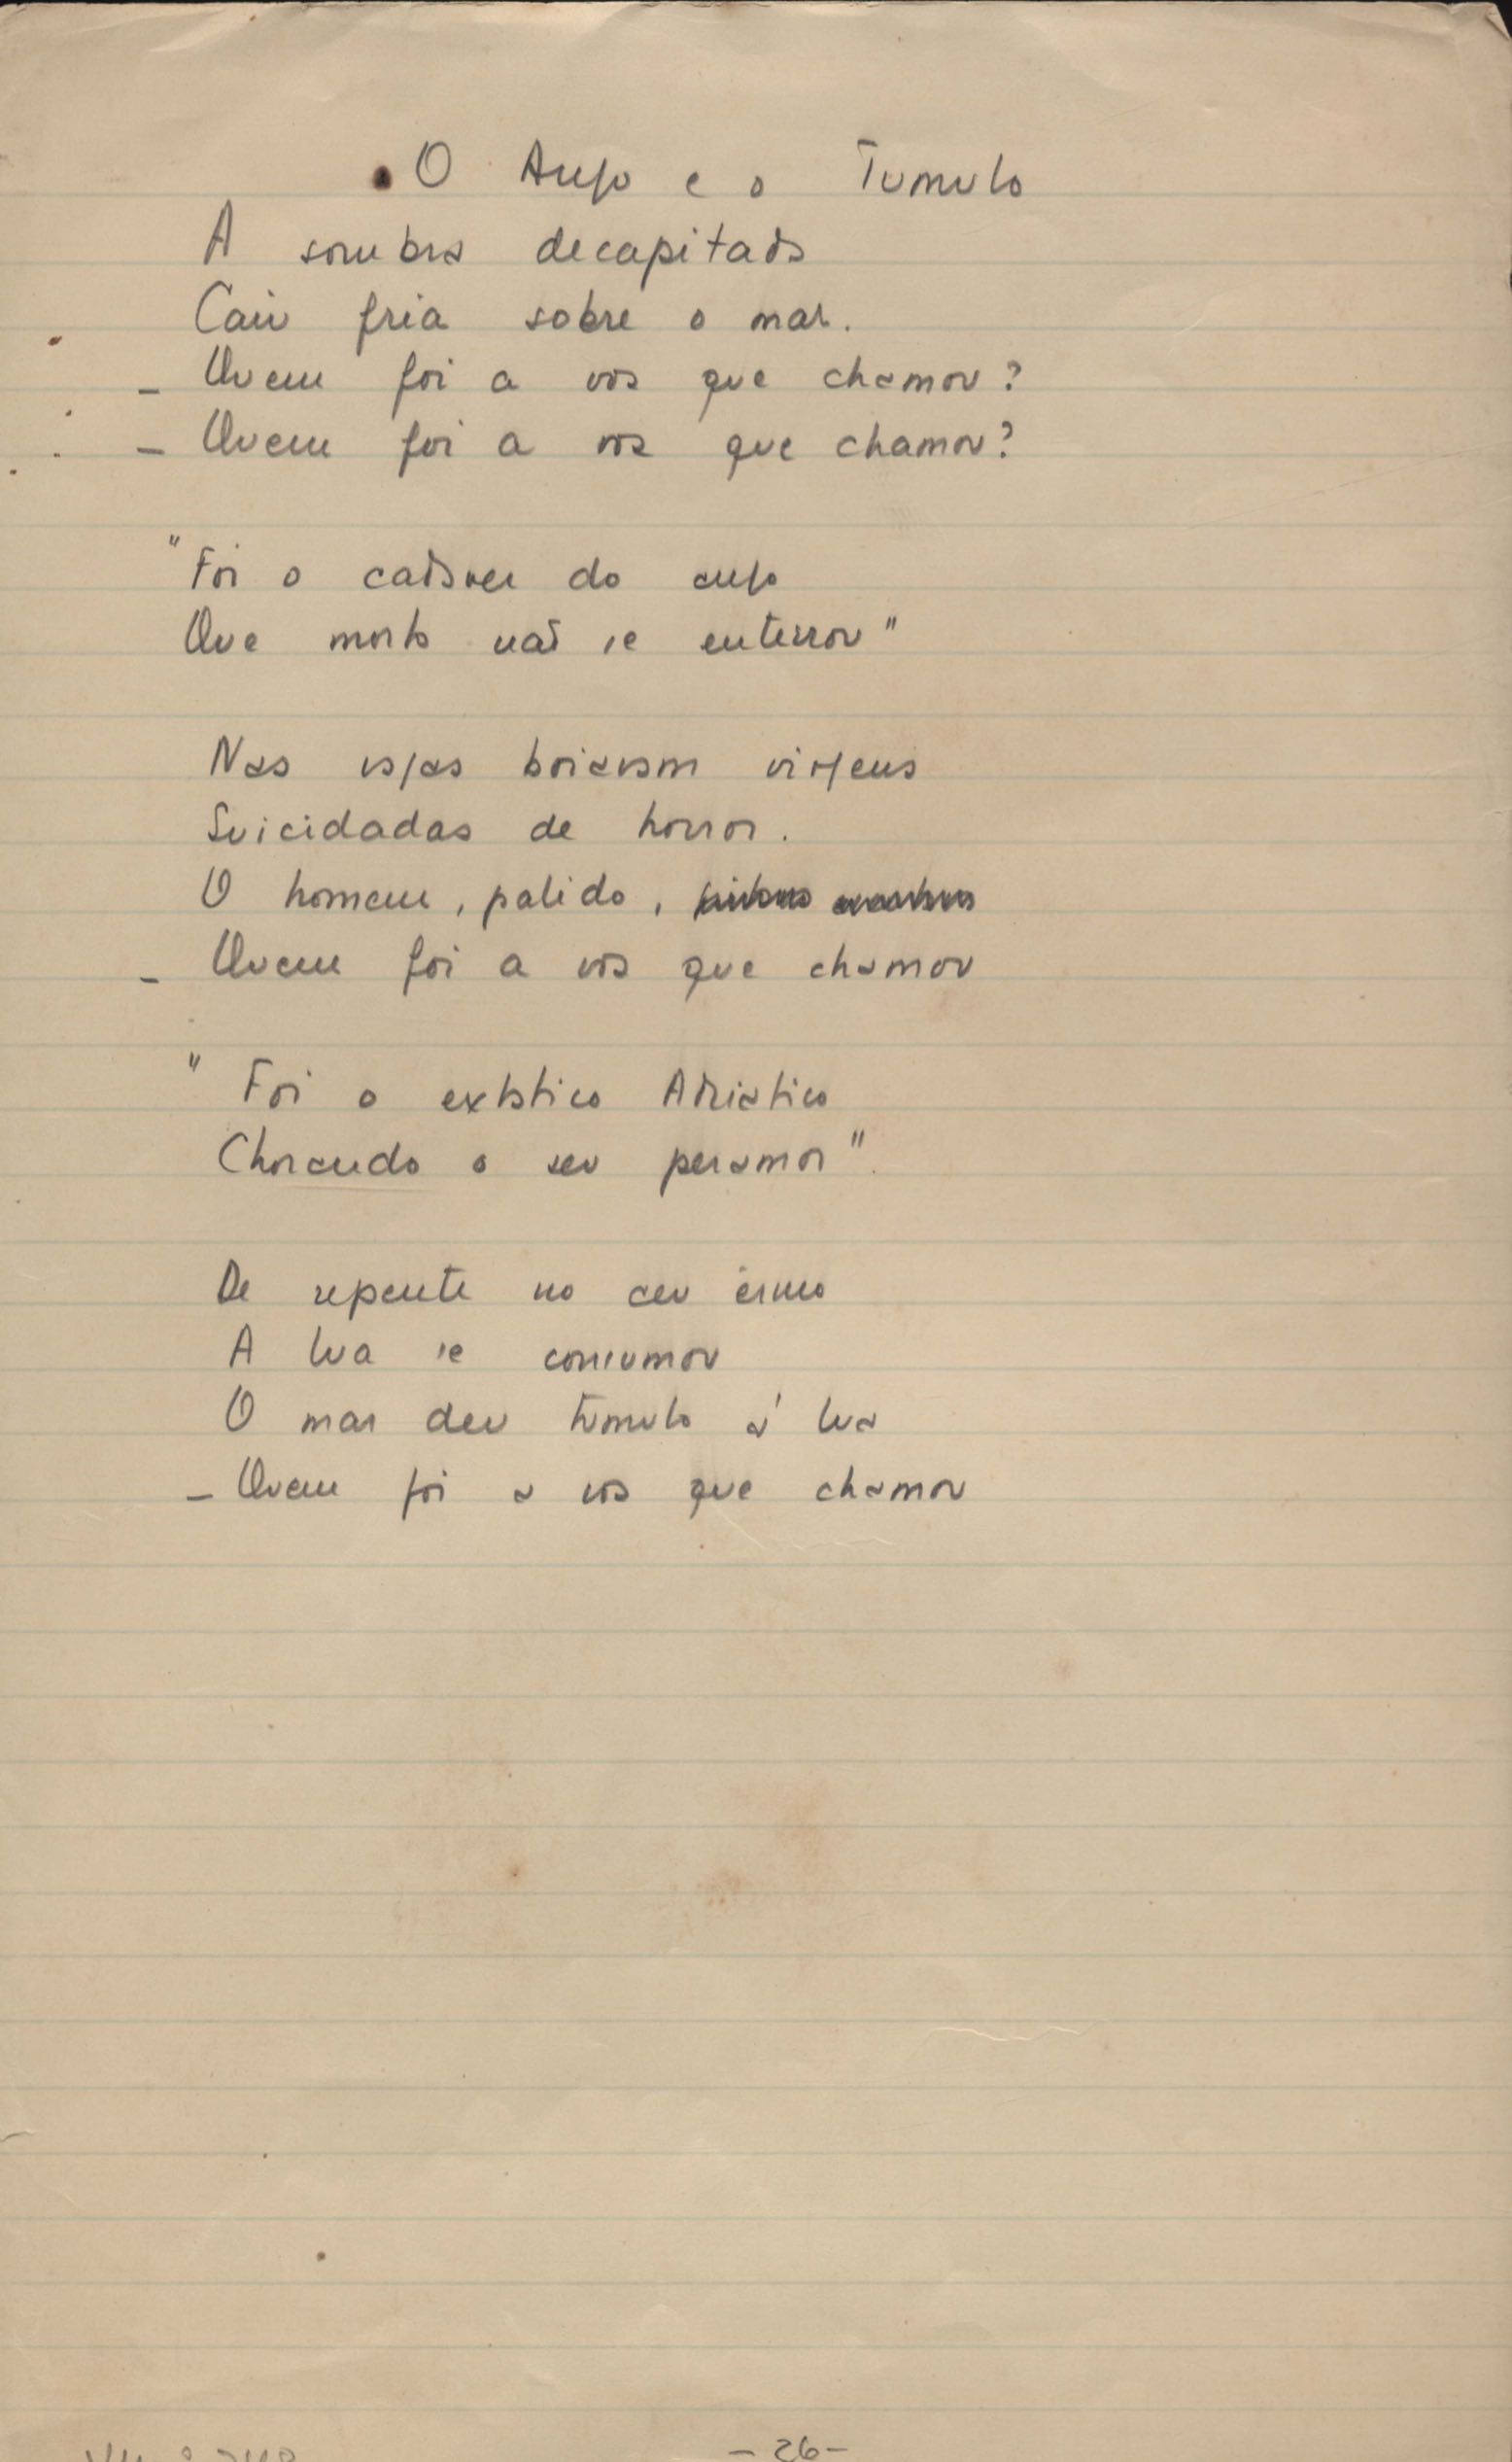 O Anjo e o Tumulo
A sombra decapitada
Caiu fria sobre o mar.
– Quem foi a voz que chamou?
– Quem foi a voz que chamou?
"Foi o cadaver do anjo
Que morto não se enterrou"
Nas vagas boiavam virgens
Suicidadas de horror.
O homem, palido,
– Quem foi a voz que chamou
"Foi o extatico Adriatico
Chorando o seu peramor".
De repente no ceu ermo
A lua se consumou
O mar deu túmulo á lua
– Quem foi a voz que chamou
– 26 –